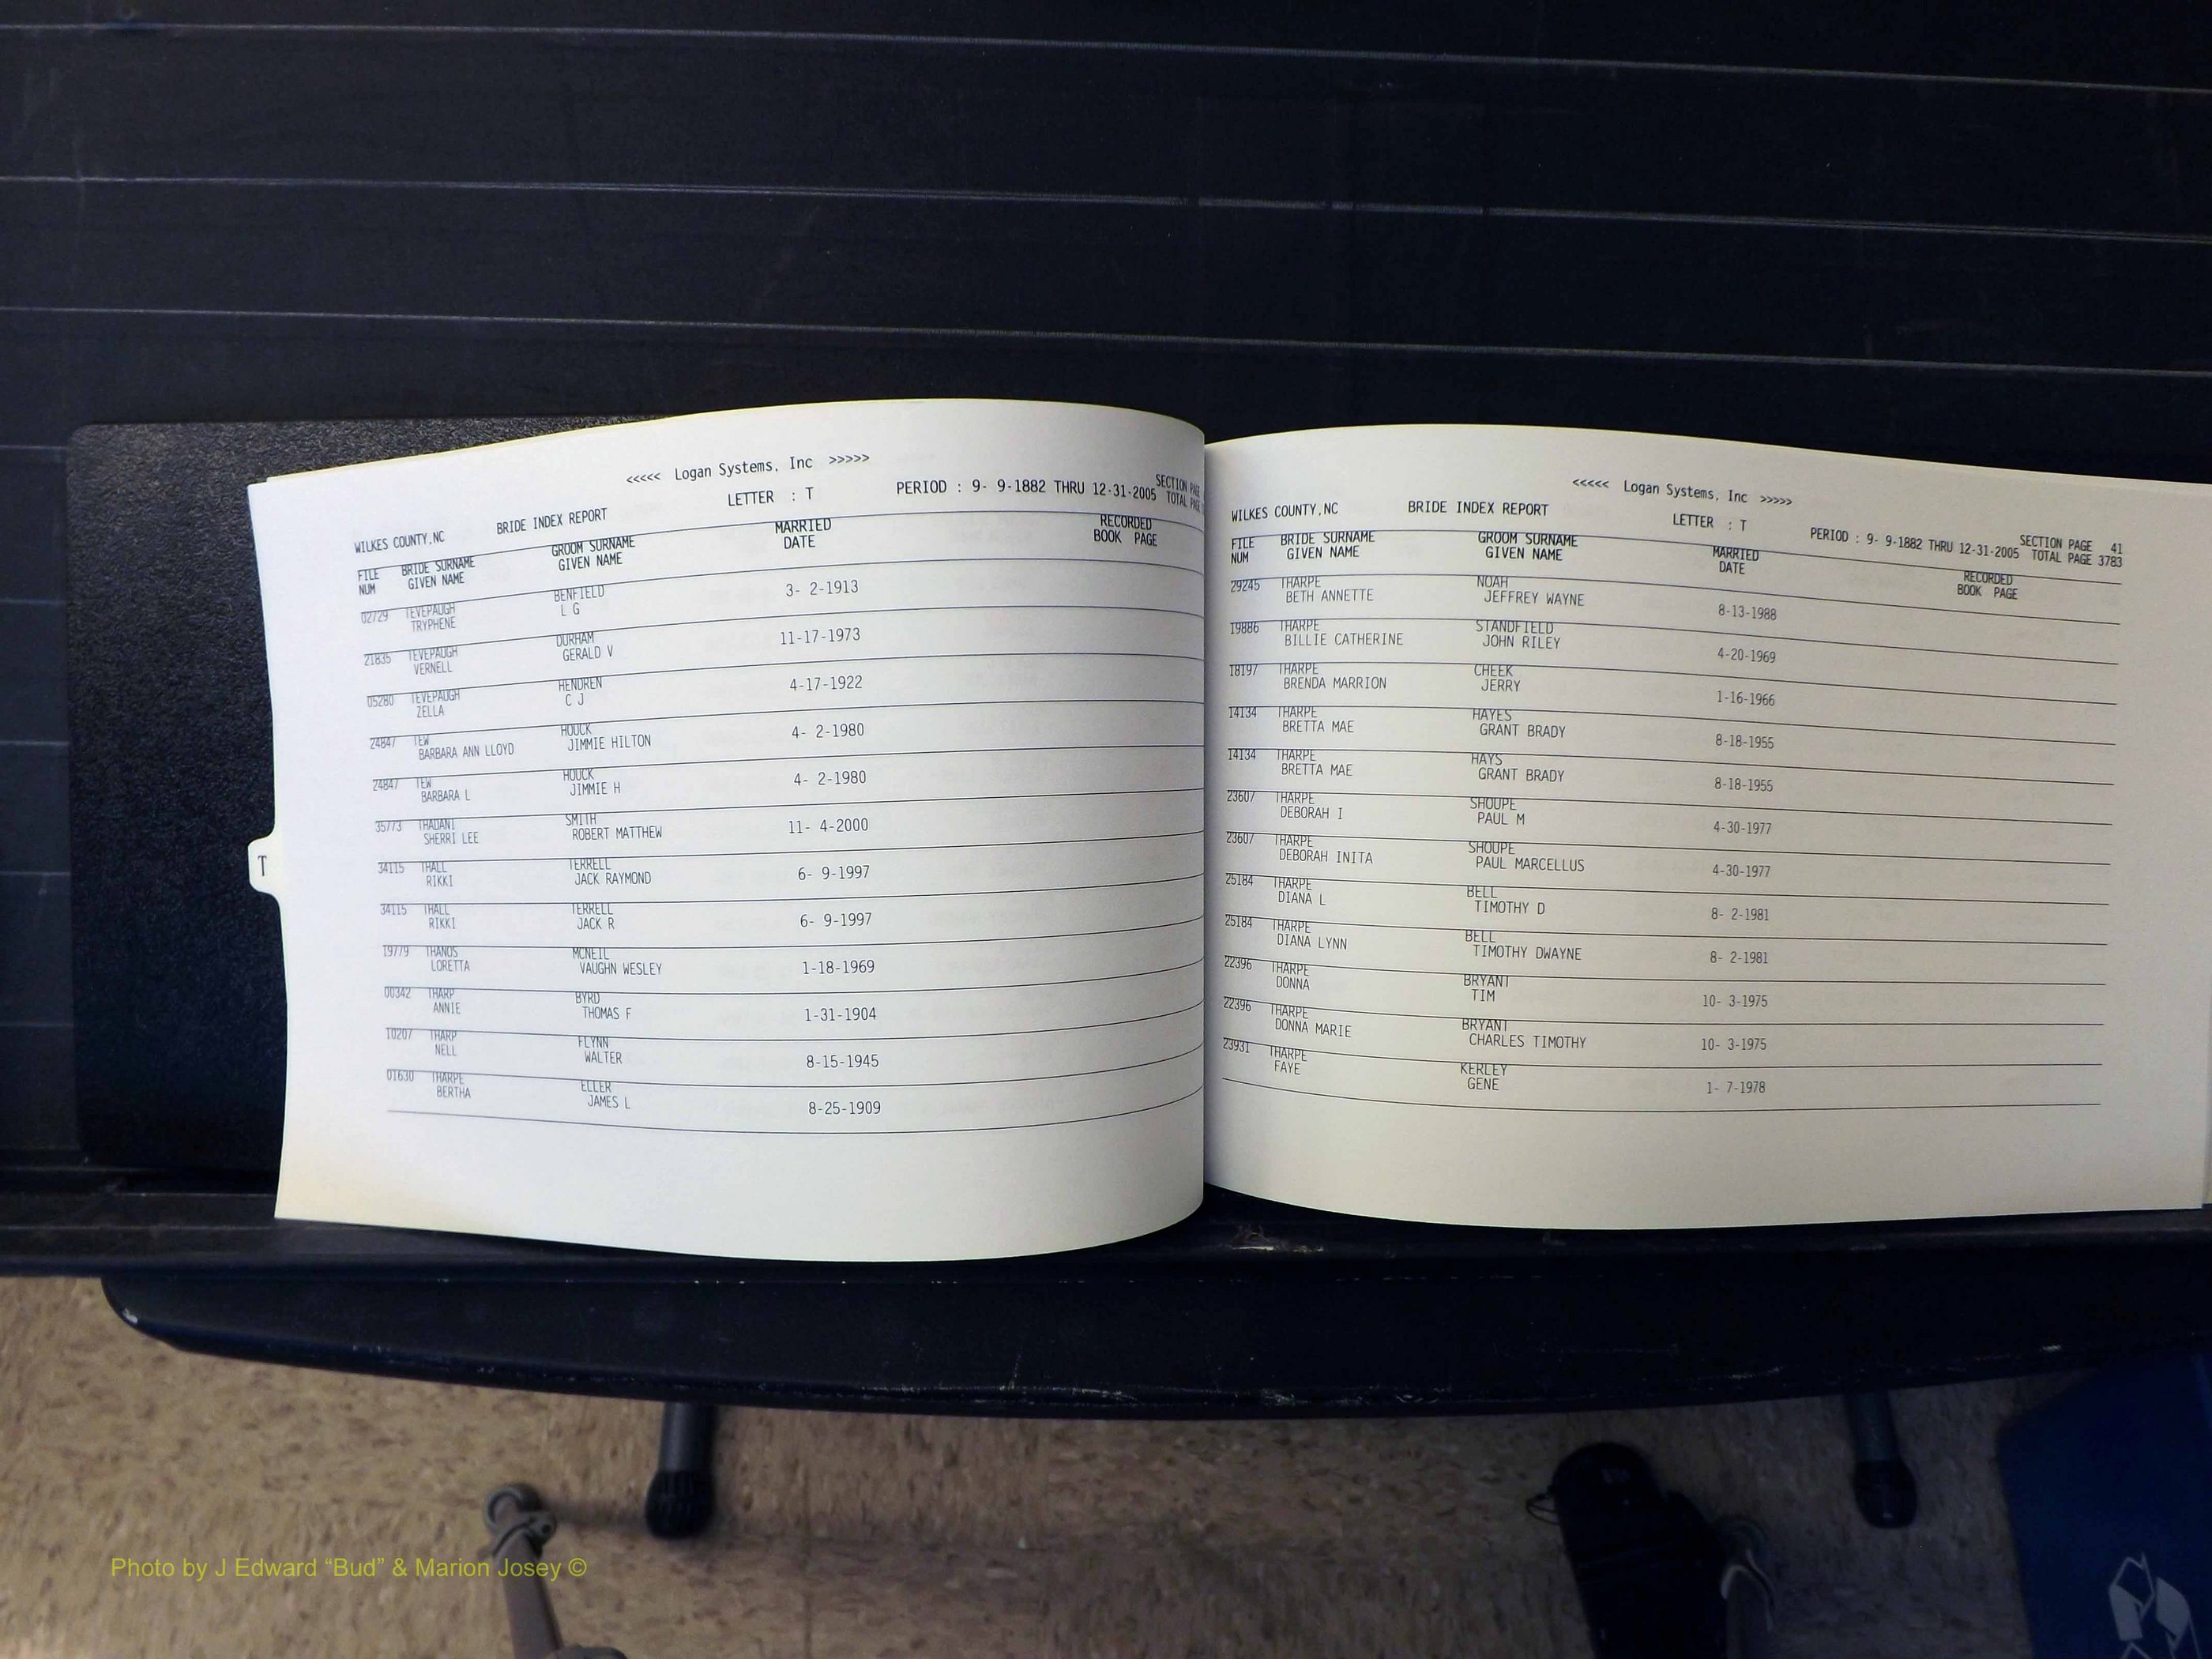 <<<<< Logan Systems, Inc >>>>>
WILKES COUNTY,NC BRIDE INDEX REPORT LETTER : T PERIOD : 9- 9-1882 THRU 12-31-2005 SECTION PAGE
TOTAL PAGE
FILE BRIDE SURNAME GROOM SURNAME MARRIED RECORDED
NUM GIVEN NAME GIVEN NAME DATE BOOK PAGE
02729 TEVEPAUGH BENFIELD 3- 2-1913
TRYPHENE L G
21835 TEVEPAUGH DURHAM 11-17-1973
VERNELL GERALD V
05280 TEVEPAUGH HENDREN 4-17-1922
ZELLA C J
24847 TEW HOUCK 4- 2-1980
BARBARA ANN LLOYD JIMMIE HILTON
24847 TEW HOUCK 4- 2-1980
BARBARA L JIMMIE H
35773 THADANI SMITH 11- 4-2000
SHERRI LEE ROBERT MATTHEW
34115 THALL TERRELL 6- 9-1997
RIKKI JACK RAYMOND
34115 THALL TERRELL 6- 9-1997
RIKKI JACK R
19779 THANOS MCNEIL 1-18-1969
LORETTA VAUGHN WESLEY
00342 THARP BYRD 1-31-1904
ANNIE THOMAS F
10207 THARP FLYNN 8-15-1945
NELL WALTER
01630 THARPE ELLER 8-25-1909
BERTHA JAMES L
T
<<<<< Logan Systems, Inc >>>>>
WILKES COUNTY,NC BRIDE INDEX REPORT LETTER : T PERIOD : 9- 9-1882 THRU 12-31-2005 SECTION PAGE 41
TOTAL PAGE 3783
FILE BRIDE SURNAME GROOM SURNAME MARRIED RECORDED
NUM GIVEN NAME GIVEN NAME DATE BOOK PAGE
29245 THARPE NOAH 8-13-1988
BETH ANNETTE JEFFREY WAYNE
19886 THARPE STANDFIELD 4-20-1969
BILLIE CATHERINE JOHN RILEY
18197 THARPE CHEEK 1-16-1966
BRENDA MARRION JERRY
14134 THARPE HAYES 8-18-1955
BRETTA MAE GRANT BRADY
14134 THARPE HAYS 8-18-1955
BRETTA MAE GRANT BRADY
23607 THARPE SHOUPE 4-30-1977
DEBORAH I PAUL M
23607 THARPE SHOUPE 4-30-1977
DEBORAH INITA PAUL MARCELLUS
25184 THARPE BELL 8- 2-1981
DIANA L TIMOTHY D
25184 THARPE BELL 8- 2-1981
DIANA LYNN TIMOTHY DWAYNE
22396 THARPE BRYANT 10- 3-1975
DONNA TIM
22396 THARPE BRYANT 10- 3-1975
DONNA MARIE CHARLES TIMOTHY
23931 THARPE KERLEY 1- 7-1978
FAYE GENE
Photo by J Edward “Bud” & Marion Josey ©